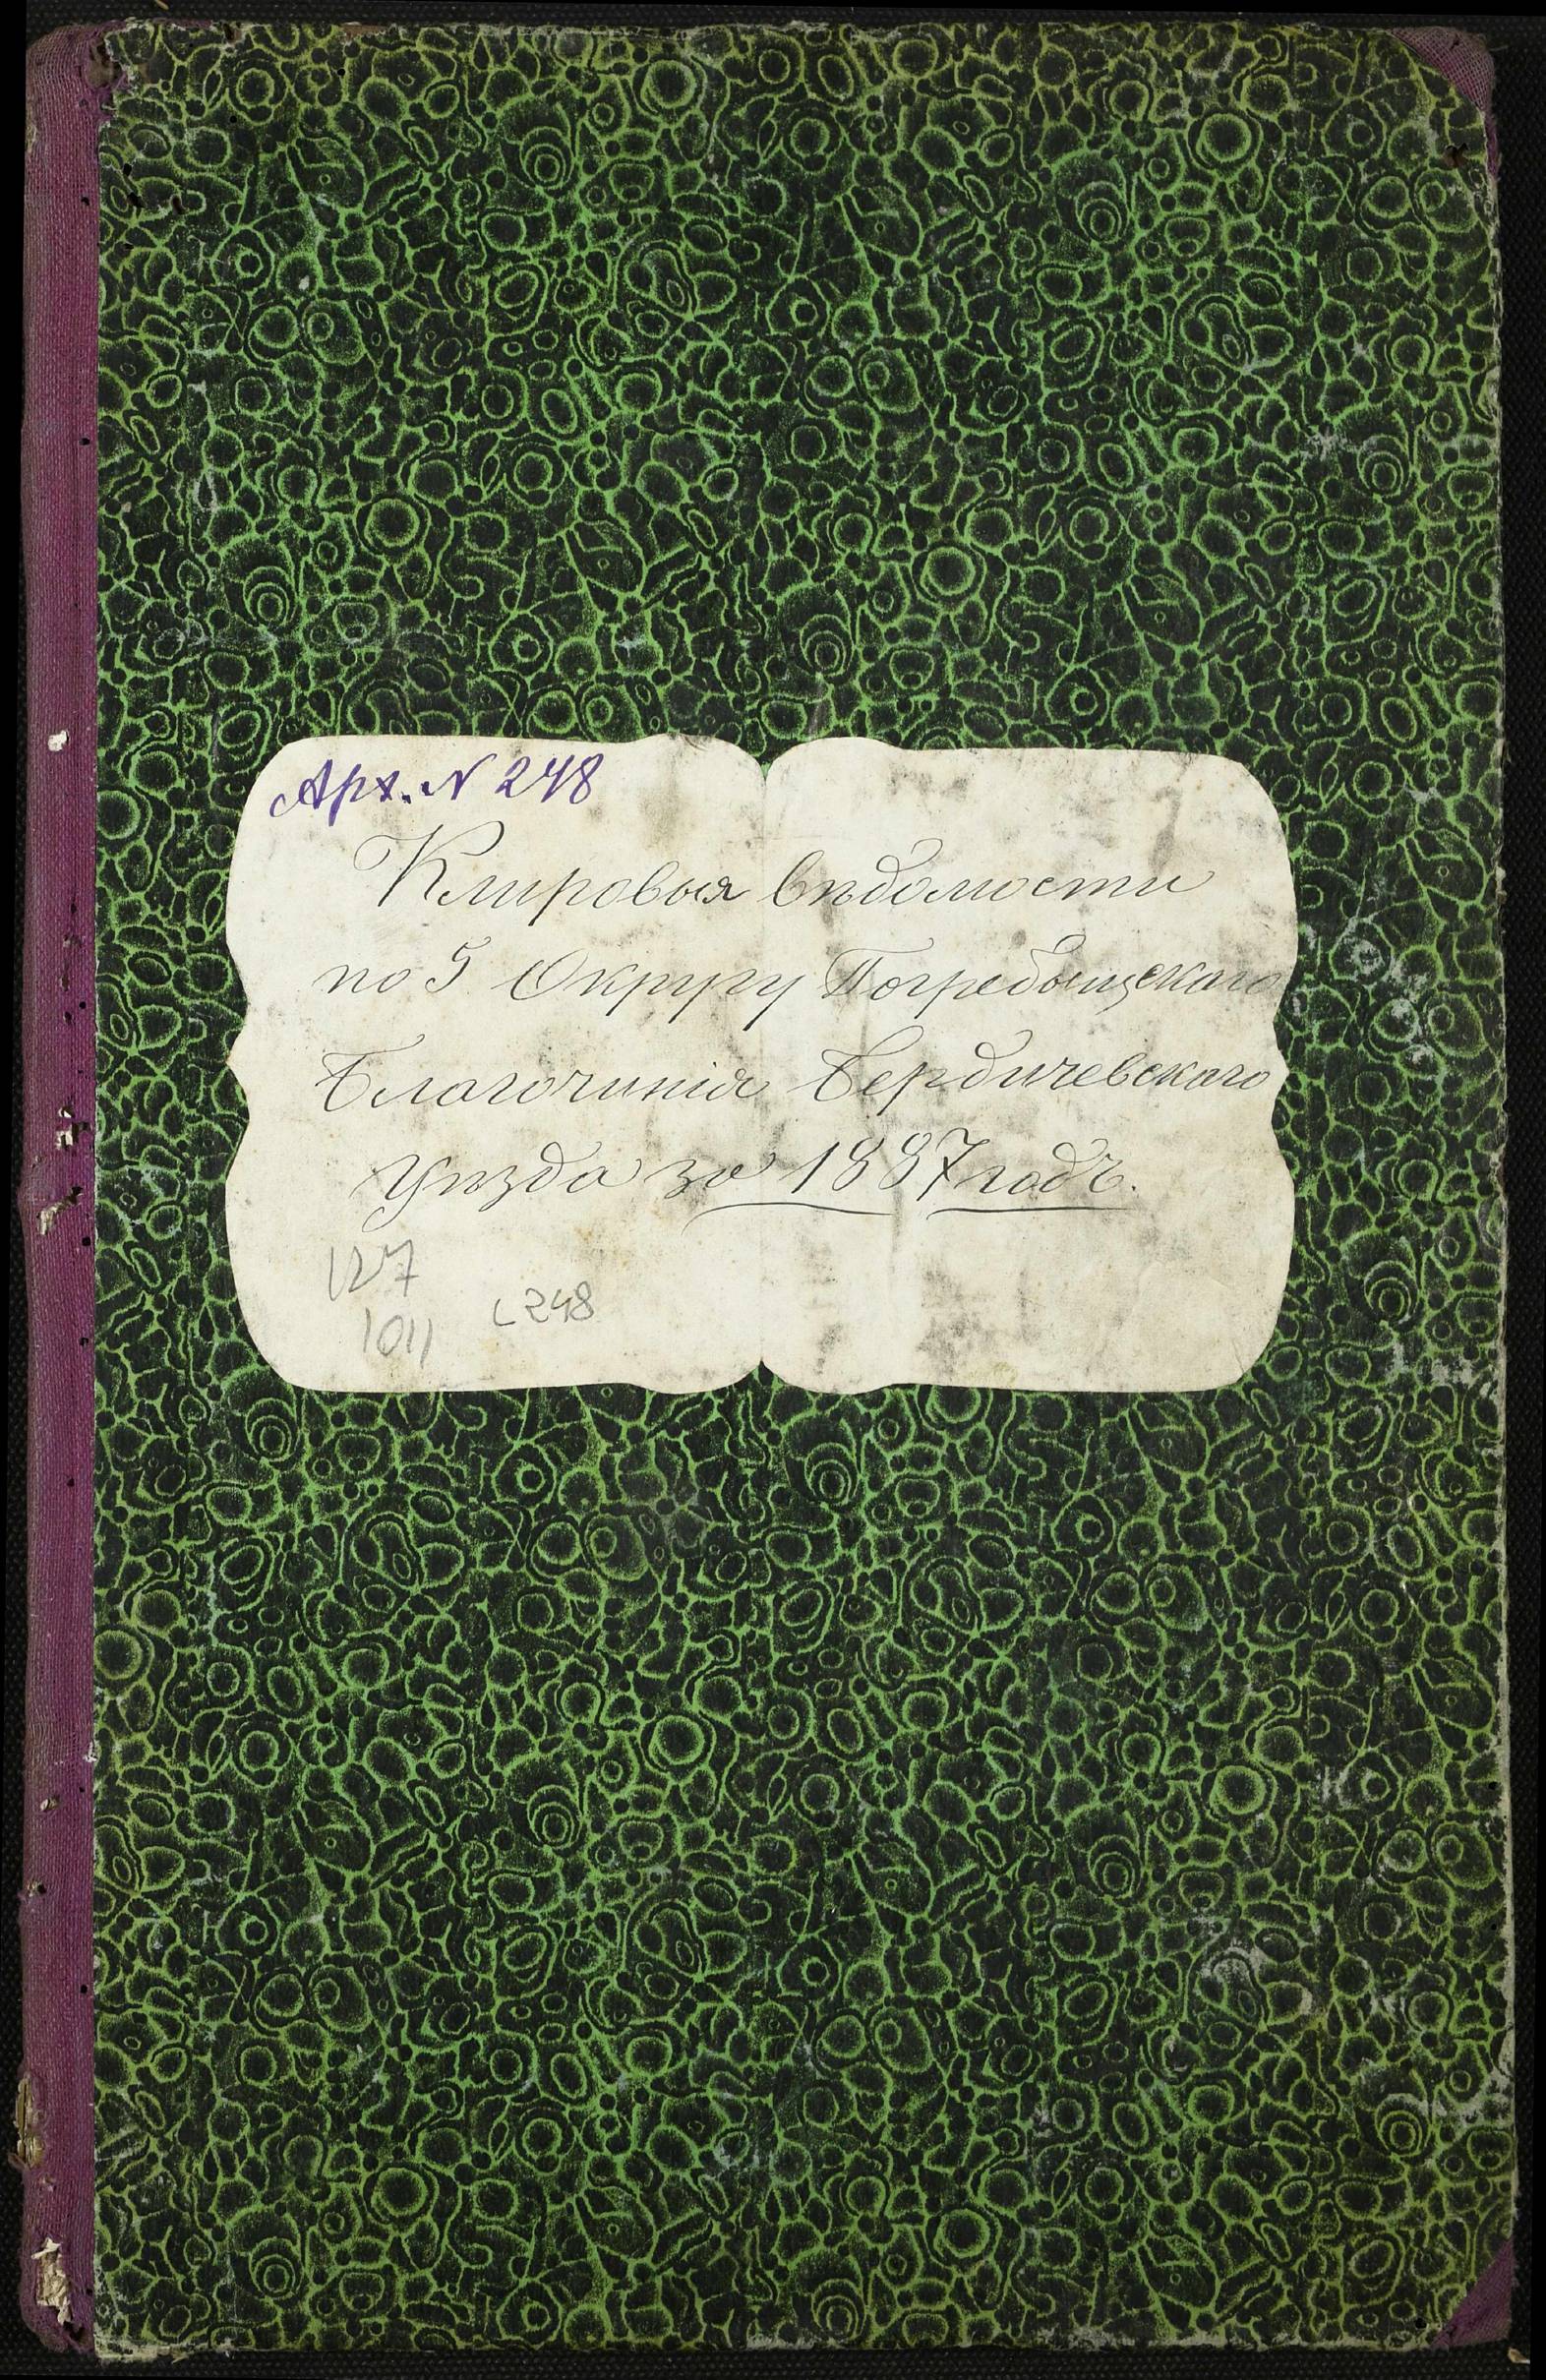 Арх. N 248
Клировыя вѣдомости
по 5 Округу Погребыщскаго
Благочинія Бердичевскаго
уѣзда за 1887 годъ.
127
1011 L 248